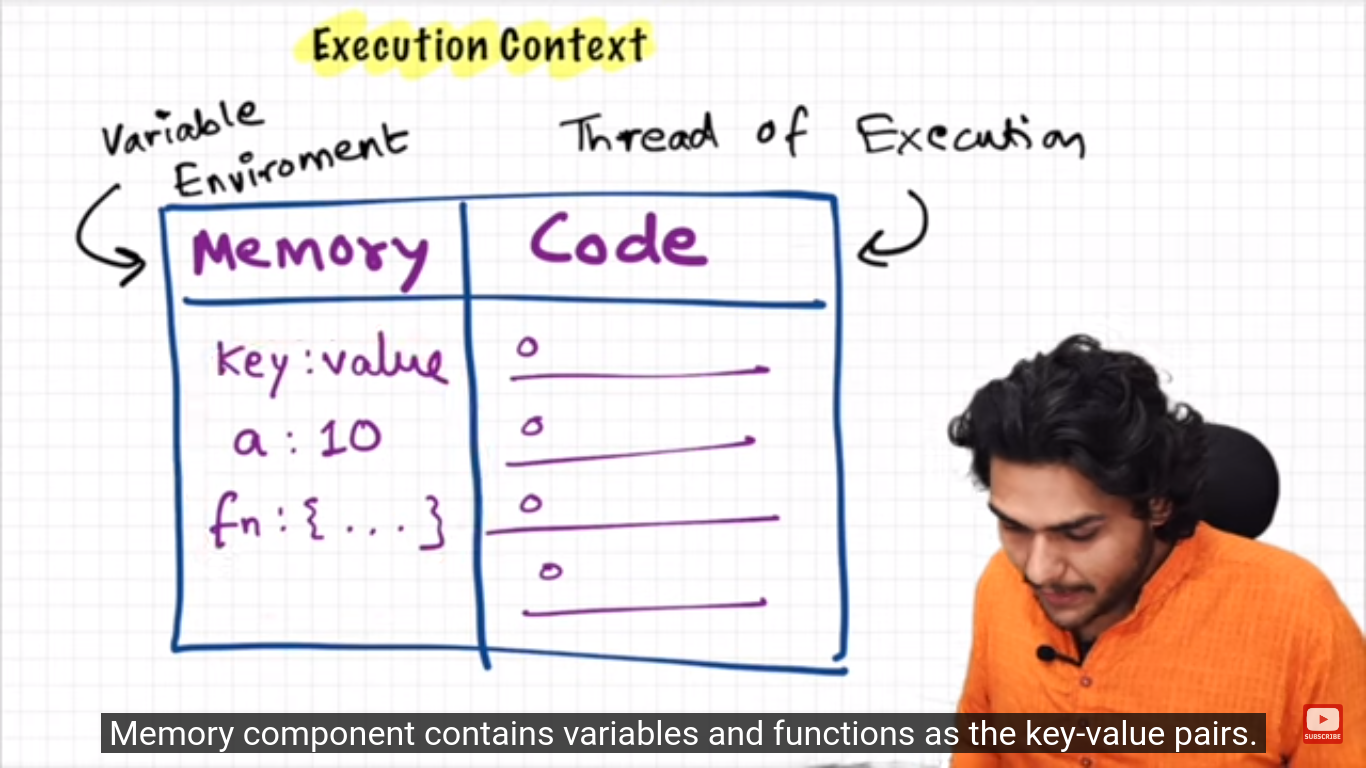 Execution Context
Variable
Enviroment
Thread of Execution
Memory
Code
key : value
a : 10
fn : { . . . }
Memory component contains variables and functions as the key-value pairs.
SUBSCRIBE